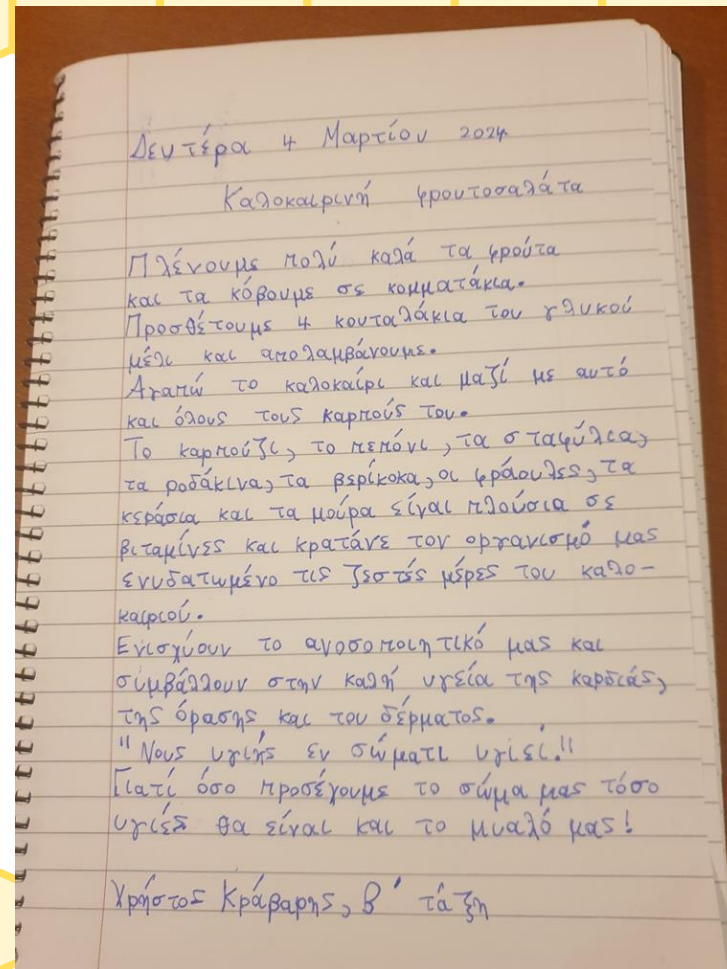 Δευτέρα 4 Μαρτίου 2024
Καλοκαιρινή φρουτοσαλάτα
Πλένουμε πολύ καλά τα φρούτα
και τα κόβουμε σε κομματάκια.
Προσθέτουμε 4 κουταλάκια του γλυκού
μέλι και απολαμβάνουμε.
Αγαπώ το καλοκαίρι και μαζί με αυτό
και όλους τους καρπούς του.
Το καρπούζι, το πεπόνι, τα σταφύλια,
τα ροδάκινα, τα βερίκοκα, οι φράουλες, τα
κεράσια και τα μούρα είναι πλούσια σε
βιταμίνες και κρατάνε τον οργανισμό μας
ενυδατωμένο τις ζεστές μέρες του καλο-
καιριού.
Ενισχύουν το ανοσοποιητικό μας και
συμβάλλουν στην καλή υγεία της καρδιάς,
της όρασης και του δέρματος.
"Νους υγιής εν σώματι υγιεί."
Γιατί όσο προσέχουμε το σώμα μας τόσο
υγιές θα είναι και το μυαλό μας!
Χρήστος Κράβαρης, Β' τάξη